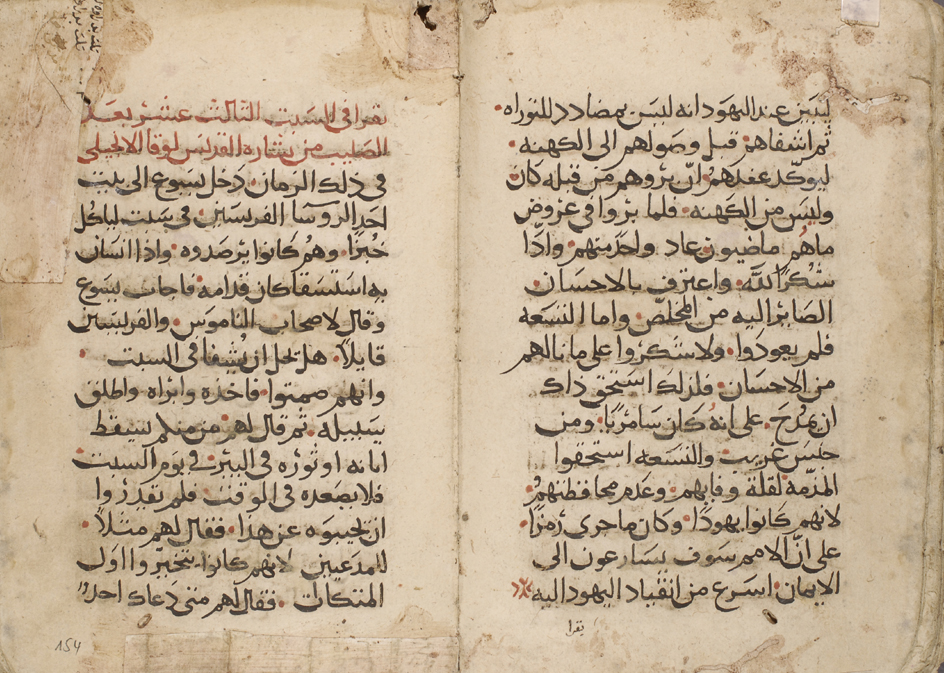 ليبين عند اليهود انه ليس بمضادد للتوراه
ثم اشفاهم قبل وصولهم الى الكهنه
ليوكد عندهم ان بروهم من قبله كان
وليس من الكهنه فلما بروا في عروض
ما هم ماضيون عاد واحد منهم واذا
شكر الله واعترف بالاحسان
الصاير اليه من المخلص واما التسعه
فلم يعودوا ولا شكروا على ما نالهم
من الاحسان فلذلك استحق ذاك
ان يمدح على انه كان سامريا ومن
جنس غريب والتسعه استحقوا
المذمه لقلة وفايهم وعدم محافظتهم
لانهم كانوا يهودا وكان ما جرى رمزا
على ان الامم سوف يسارعون الى
الايمان اسرع من انقياد اليهود اليه
يقرا
يقرا في السبت الثالث عشر بعد
الصليب من بشارة القديس لوقا الانجيلي
في ذلك الزمان دخل يسوع الى بيت
احد الروسا الفريسيين في سبت لياكل
خبزا وهم كانوا يرصدوه واذا انسان
به استسقا كان قدامه فاجاب يسوع
وقال لاصحاب الناموس والفريسيين
قايلا هل يحل ان يشفا في السبت
وانهم صمتوا فاخذه وابراه واطلق
سبيله ثم قال لهم من منكم يسقط
اتانه او ثوره في البير في يوم السبت
فلا يصعده في الوقت فلم يقدروا
ان يجيبوه عن هذا فقال لهم مثلا
للمدعيين لانهم كانوا يتخيروا اول
المتكات فقال لهم متى دعاك احد
154